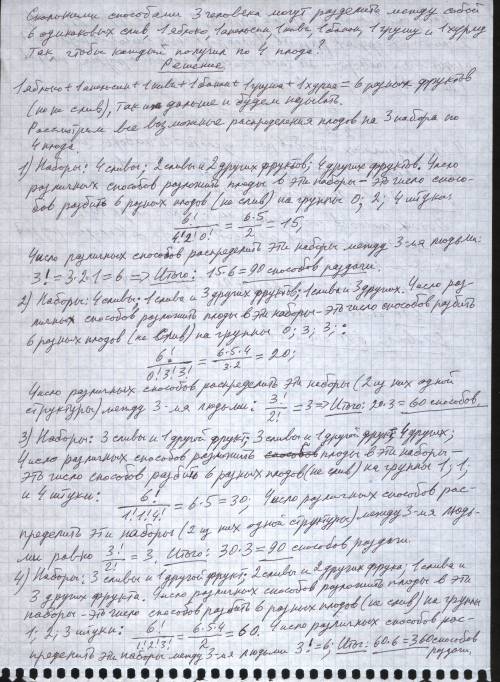 Сколькими способами 3 человека могут разделить между собой
6 одинаковых слив, 1 яблоко, 1 апельсин, 1 киви, 1 банан, 1 грушу и 1 хурму
так, чтобы каждый получил по 4 плода?
Решение
1 яблоко + 1 апельсин + 1 киви + 1 банан + 1 груша + 1 хурма = 6 разных фруктов
(но не слив), так их дальше и будем называть.
Рассмотрим все возможные распределения плодов на 3 набора по
4 плода.
1) Наборы: 4 сливы; 2 сливы и 2 других фруктов; 4 других фруктов. Число
различных способов разложить плоды в эти наборы – это число спосо-
бов разбить 6 разных плодов (не слив) на группы 0; 2; 4 штуки:
6!/(4!2!0!) = 6·5/2 = 15;
Число различных способов распределить эти наборы между 3-мя людьми:
3! = 3·2·1 = 6 => Итого: 15·6 = 90 способов раздачи.
2) Наборы: 4 сливы; 1 слива и 3 других фруктов; 1 слива и 3 других. Число раз-
личных способов разложить плоды в эти наборы – это число способов разбить
6 разных плодов (не слив) на группы 0; 3; 3;:
6!/(0!3!3!) = 6·5·4/(3·2) = 20;
Число различных способов распределить эти наборы (2 из них одной
структуры) между 3-мя людьми: 3!/2! = 3 => Итого: 20·3 = 60 способов.
3) Наборы: 3 сливы и 1 другой фрукт; 3 сливы и 1 другой фрукт; 4 других;
Число различных способов разложить плоды в эти наборы –
это число способов разбить 6 разных плодов (не слив) на группы 1; 1;
и 4 штуки: 6!/(1!1!4!) = 6·5 = 30; Число различных способов рас-
пределить эти наборы (2 из них одной структуры) между 3-мя людь-
ми равно 3!/2! = 3. Итого: 30·3 = 90 способов раздачи.
4) Наборы: 3 сливы и 1 другой фрукт; 2 сливы и 2 других фрукта; 1 слива и
3 других фрукта. Число различных способов разложить плоды в эти
наборы – это число способов разбить 6 разных плодов (не слив) на группы
1; 2; 3 штуки: 6!/(1!2!3!) = 6·5·4/2 = 60. Число различных способов рас-
пределить эти наборы между 3-мя людьми 3! = 6; Итог: 60·6 = 360 способов
раздачи.